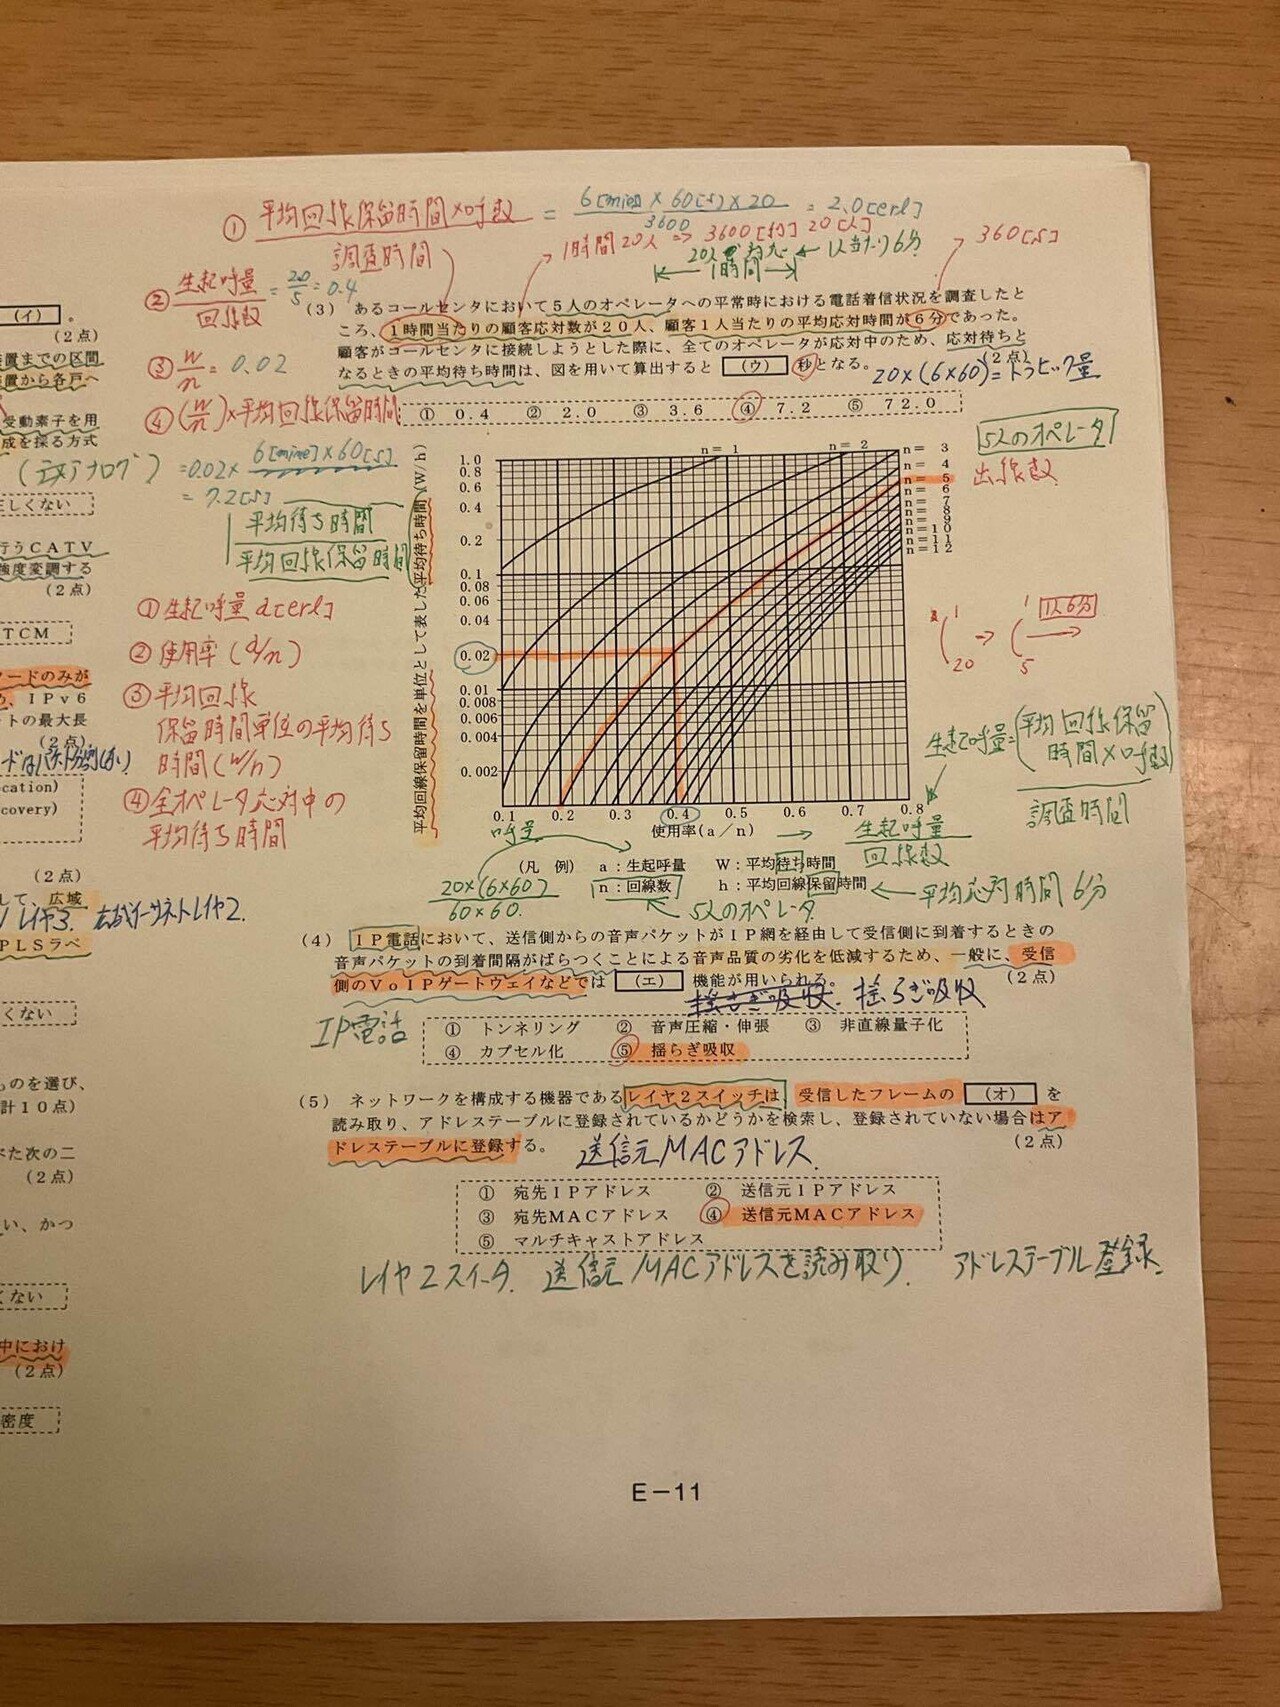 ① 平均回線保留時間×呼数 / 調査時間 = 6[min]×60[s]×20 / 3600 = 2.0[erl]
1時間20人 ⇒ 3600[秒] 20[人]
1人当たり6分
360[s]
1時間
② 生起呼量 / 回線数 = 2.0 / 5 = 0.4
③ W/n = 0.02
④ (W/n)×平均回線保留時間
=0.02× 6[min]×60[s]
= 7.2[s]
平均待ち時間
平均回線保留時間
①生起呼量a[erl]
②使用率(a/n)
③平均回線
保留時間単位の平均待ち
時間(W/n)
④全オペレータ応対中の
平均待ち時間
(イ) 。
(2点)
装置までの区間
装置から各戸へ
受動素子を用
成を採る方式
正しくない
行うCATV
強度変調する
(2点)
TCM
ードのみが
、IPv6
ットの最大長
(2点)
cation)
covery)
(2点)
して、広域
レイヤ3. 広域イーサネットレイヤ2.
PLSラベ
くない
ものを選び、
計10点)
べた次の二
(2点)
い、かつ
ない
中におけ
(2点)
密度
(3) あるコールセンタにおいて5人のオペレータへの平常時における電話着信状況を調査したと
ころ、1時間当たりの顧客応対数が20人、顧客1人当たりの平均応対時間が6分であった。
顧客がコールセンタに接続しようとした際に、全てのオペレータが応対中のため、応対待ちと
なるときの平均待ち時間は、図を用いて算出すると (ウ) 秒となる。 (2点)
20×(6×60)=トラヒック量
① 0.4 ② 2.0 ③ 3.6 ④ 7.2 ⑤ 72.0
5人のオペレータ
出線数
平均回線保留時間を単位として表した平均待ち時間(W/h)
1.0
0.8
0.6
0.4
0.2
0.1
0.08
0.06
0.04
0.02
0.01
0.008
0.006
0.004
0.002
n= 1
n= 2
n= 3
n= 4
n= 5
n= 6
n= 7
n= 8
n= 9
n=10
n=11
n=12
0.1 0.2 0.3 0.4 0.5 0.6 0.7 0.8
使用率(a/n)
1人6分
生起呼量=(平均回線保留
時間×呼数)
調査時間
呼量
生起呼量
回線数
(凡 例) a:生起呼量 W:平均待ち時間
n:回線数 h:平均回線保留時間
20×(6×60)
60×60.
5人のオペレータ
平均応対時間6分
(4) IP電話において、送信側からの音声パケットがIP網を経由して受信側に到着するときの
音声パケットの到着間隔がばらつくことによる音声品質の劣化を低減するため、一般に、受信
側のVoIPゲートウェイなどでは (エ) 機能が用いられる。 (2点)
揺らぎ吸収
IP電話
① トンネリング ② 音声圧縮・伸張 ③ 非直線量子化
④ カプセル化 ⑤ 揺らぎ吸収
(5) ネットワークを構成する機器であるレイヤ2スイッチは、受信したフレームの (オ) を
読み取り、アドレステーブルに登録されているかどうかを検索し、登録されていない場合はア
ドレステーブルに登録する。 (2点)
送信元MACアドレス
① 宛先IPアドレス ② 送信元IPアドレス
③ 宛先MACアドレス ④ 送信元MACアドレス
⑤ マルチキャストアドレス
レイヤ2スイータ. 送信元MACアドレスを読み取り. アドレステーブル登録.
E-11